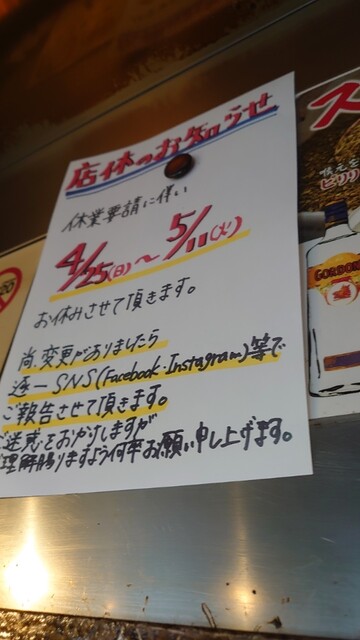 店休のお知らせ
休業要請に伴い
4/25(日)～5/11(火)
お休みさせて頂きます。
尚、変更がありましたら
逐一SNS(Facebook・Instagram)等で
ご報告させて頂きます。
ご迷惑をおかけしますが
ご理解賜りますよう何卒お願い申し上げます。
ス
ピリリ
GORDON'S